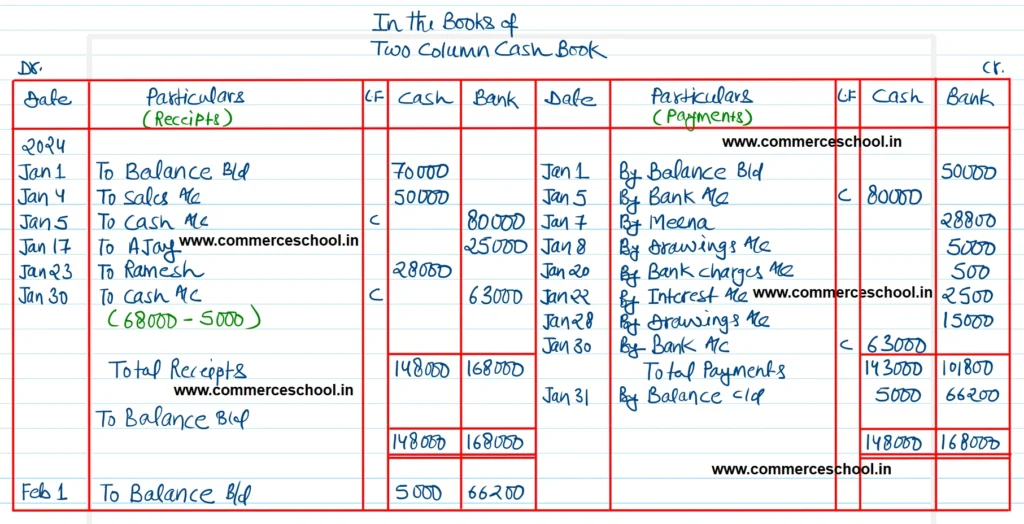 In the Books of
Two Column Cash Book
Dr. Cr.
Date Particulars LF Cash Bank Date Particulars LF Cash Bank
(Receipts) (Payments)
2024 www.commerceschool.in
Jan 1 To Balance B/d 70000 Jan 1 By Balance B/d 50000
Jan 4 To Sales A/c 50000 Jan 5 By Bank A/c C 80000
Jan 5 To Cash A/c C 80000 Jan 7 By Meena 28800
Jan 17 To AJay www.commerceschool.in 25000 Jan 8 By Drawings A/c 5000
Jan 23 To Ramesh 28000 Jan 20 By Bank charges A/c 500
Jan 30 To Cash A/c C 63000 Jan 22 By Interest A/c www.commerceschool.in 2500
(68000 - 5000) Jan 28 By Drawings A/c 15000
Jan 30 By Bank A/c C 63000
Total Receipts 148000 168000 Total Payments 143000 101800
www.commerceschool.in Jan 31 By Balance c/d 5000 66200
To Balance B/d
148000 168000 148000 168000
www.commerceschool.in
Feb 1 To Balance B/d 5000 66200